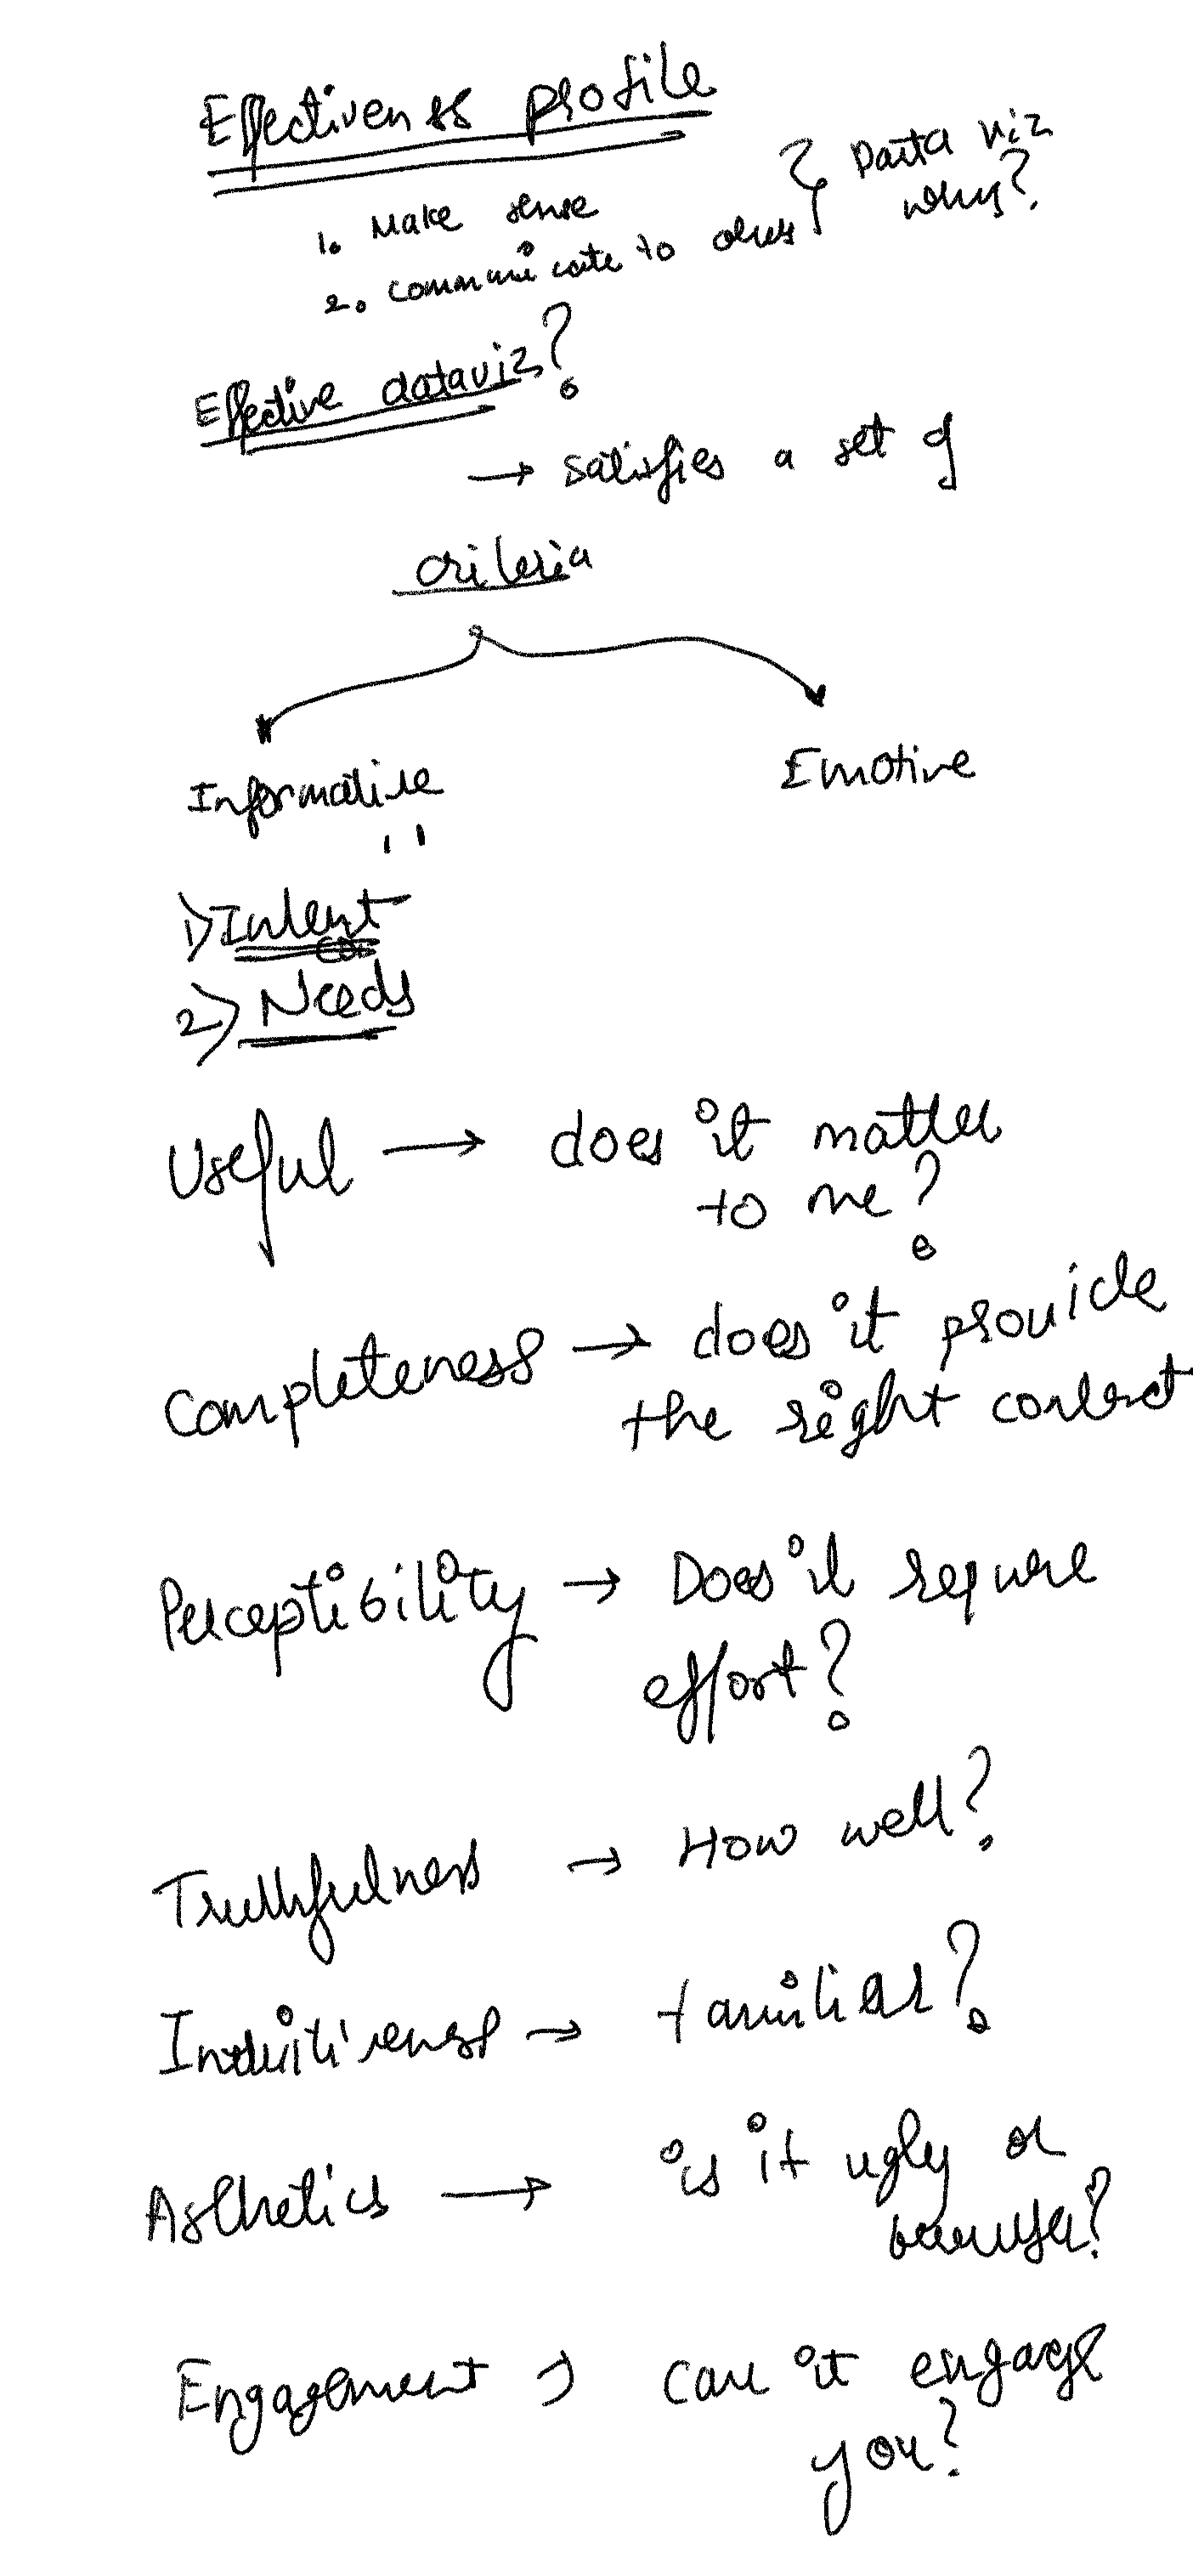 Effectiveness profile
1. Make sense
2. communicate to others } Data viz why?
Effective dataviz?
→ satisfies a set of
criteria
Informative
Emotive
1) Intent
2) Needs
Useful → does it matter
to me?
Completeness → does it provide
the right context
Perceptibility → Does it require
effort?
Truthfulness → How well?
Intuitiveness → familiar?
Asthetics → is it ugly or
beautiful?
Engagement → Can it engage
you?